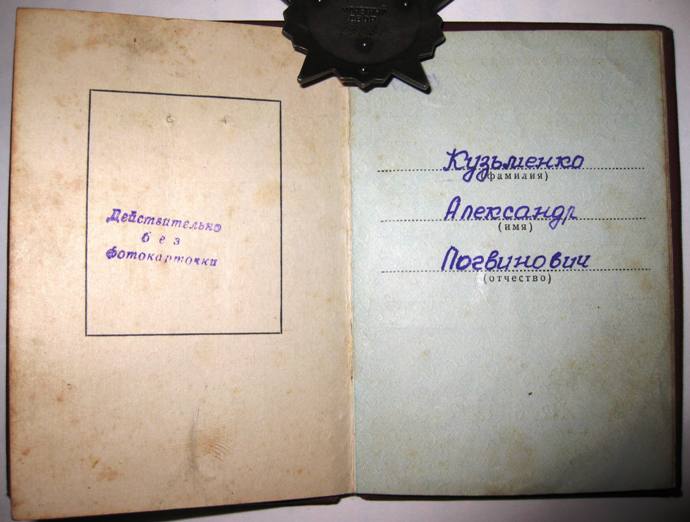 Действительно
без
фотокарточки
Кузьменко
(фамилия)
Александр
(имя)
Логвинович
(отчество)